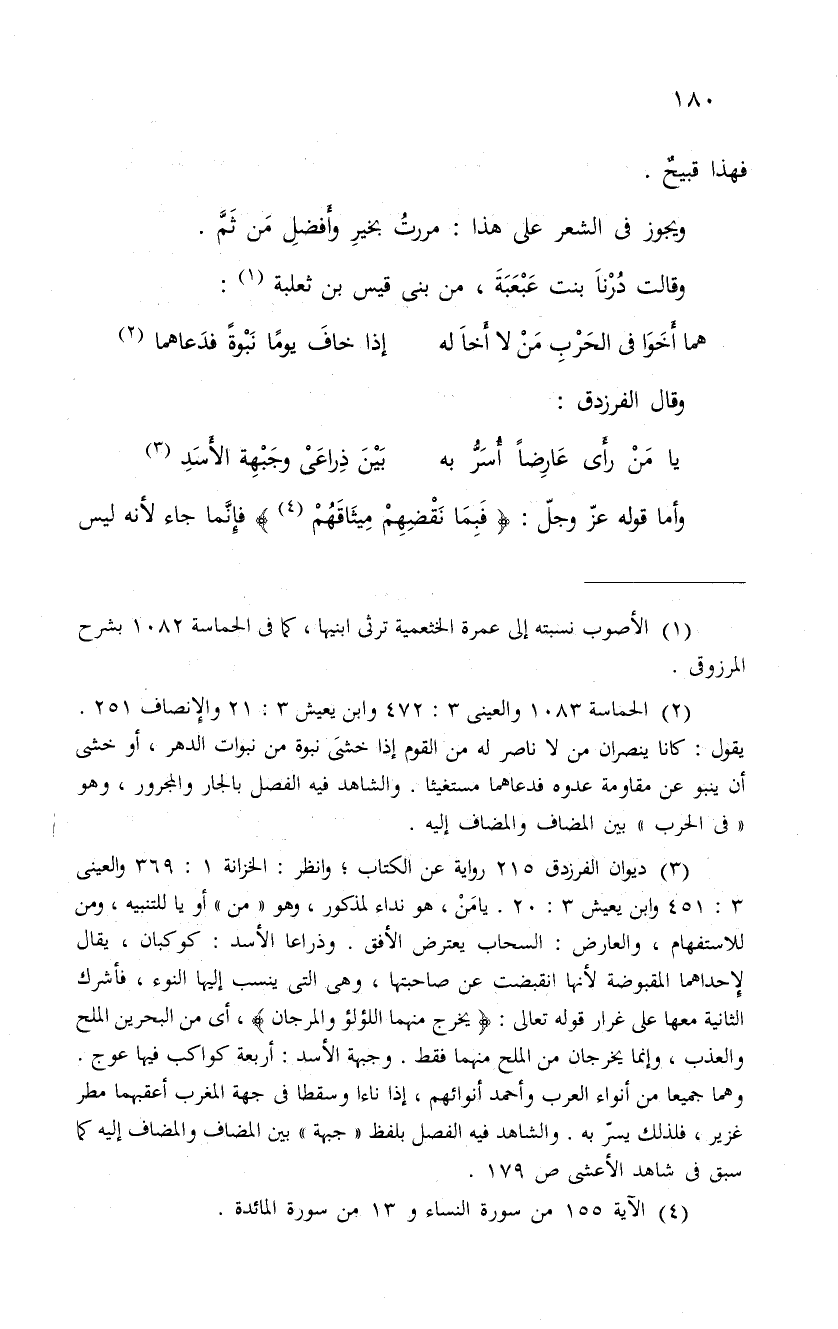 ١٨٠
فهذا قبيحٌ .
ويجوز فى الشعر على هذا : مررتُ بخيرِ وأَفضلِ مَن ثَمَّ .
وقالت دُرْناَ بنت عَبْعَبَةَ ، من بنى قيس بن ثعلبة (١) :
هما أَخَوَا فى الحَرْبِ مَنْ لا أَخاَ له إذا خافَ يومًا نَبْوةً فدَعاهما (٢)
وقال الفرزدق :
يا مَنْ رأَى عَارِضاً أُسَرُّ به بَيْنَ ذِراعَىْ وجَبْهةِ الأَسَدِ (٣)
وأما قوله عزّ وجلّ : ﴿ فَبِمَا نَقْضِهِمْ مِيثَاقَهُمْ (٤) ﴾ فإنَّما جاء لأنه ليس
(١) الأصوب نسبته إلى عمرة الخثعمية ترثى ابنيها ، كما فى الحماسة ١٠٨٢ بشرح
المرزوقى .
(٢) الحماسة ١٠٨٣ والعينى ٣ : ٤٧٢ وابن يعيش ٣ : ٢١ والإنصاف ٢٥١ .
يقول : كانا ينصران من لا ناصر له من القوم إذا خشىَ نبوة من نبوات الدهر ، أو خشى
أن ينبو عن مقاومة عدوه فدعاهما مستغيثا . والشاهد فيه الفصل بالجار والمجرور ، وهو
« فى الحرب » بين المضاف والمضاف إليه .
(٣) ديوان الفرزدق ٢١٥ رواية عن الكتاب ؛ وانظر : الخزانة ١ : ٣٦٩ والعينى
٣ : ٤٥١ وابن يعيش ٣ : ٢٠ . يامَنْ ، هو نداء لمذكور ، وهو « من » أو يا للتنبيه ، ومن
للاستفهام ، والعارض : السحاب يعترض الأفق . وذراعا الأسد : كوكبان ، يقال
لإحداهما المقبوضة لأنها انقبضت عن صاحبتها ، وهى التى ينسب إليها النوء ، فأشرك
الثانية معها على غرار قوله تعالى : ﴿ يخرج منهما اللؤلؤ والمرجان ﴾ ، أى من البحرين الملح
والعذب ، وإنما يخرجان من الملح منهما فقط . وجبهة الأسد : أربعة كواكب فيها عوج .
وهما جميعا من أنواء العرب وأحمد أنوائهم ، إذا ناءا وسقطا فى جهة المغرب أعقبهما مطر
غزير ، فلذلك يسرّ به . والشاهد فيه الفصل بلفظ « جبهة » بين المضاف والمضاف إليه كما
سبق فى شاهد الأعشى ص ١٧٩ .
(٤) الآية ١٥٥ من سورة النساء و ١٣ من سورة المائدة .